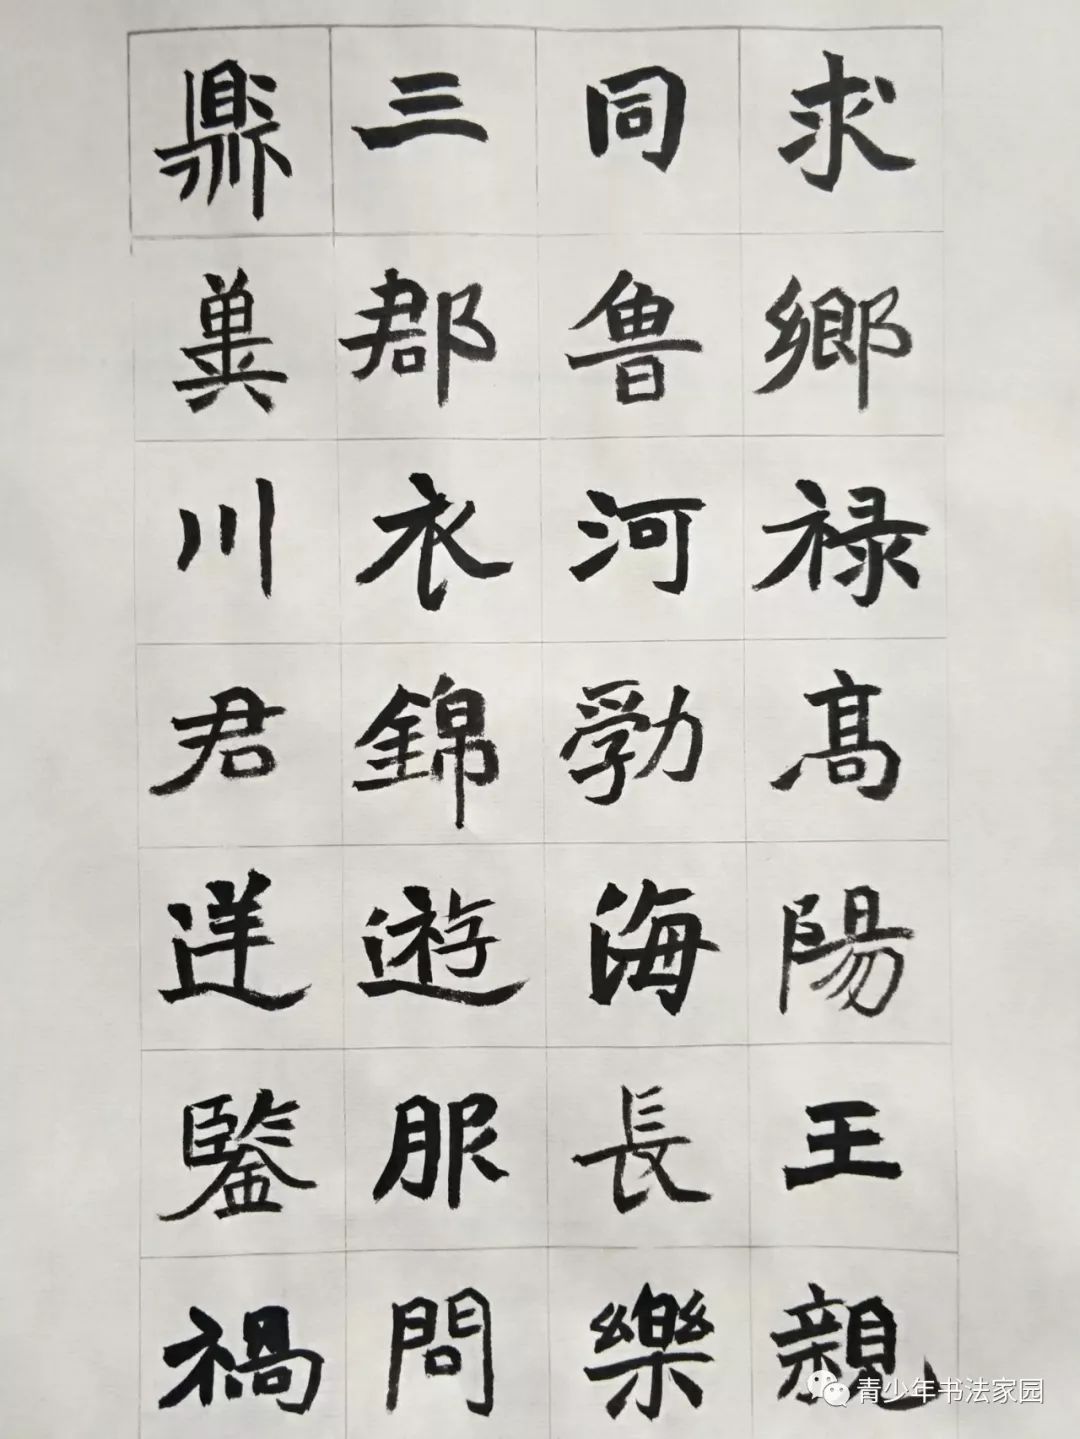 求鄉祿髙陽王親
同魯河勃海長樂
三郡衣錦遊服問
鼎冀川君送鑒禍
青少年书法家园